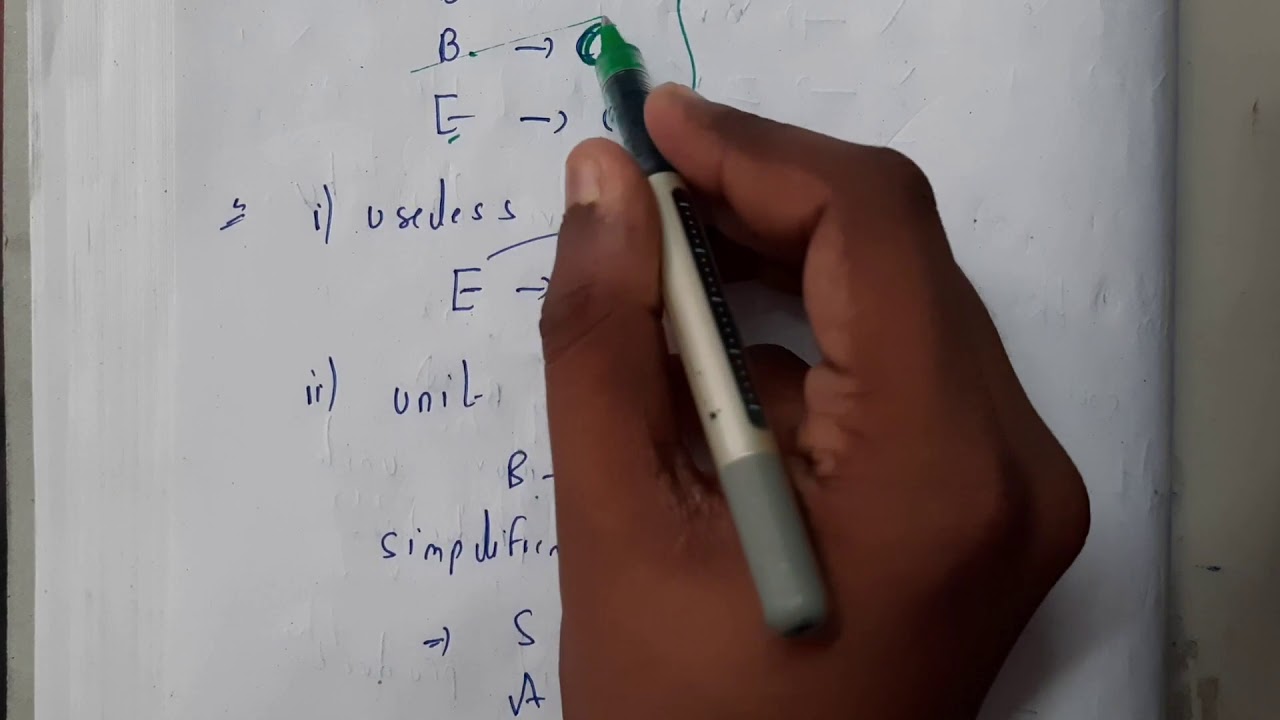 B →
E → (
⇒ i) useless
E →
ii) unit
B -
simplifica
⇒ S
A